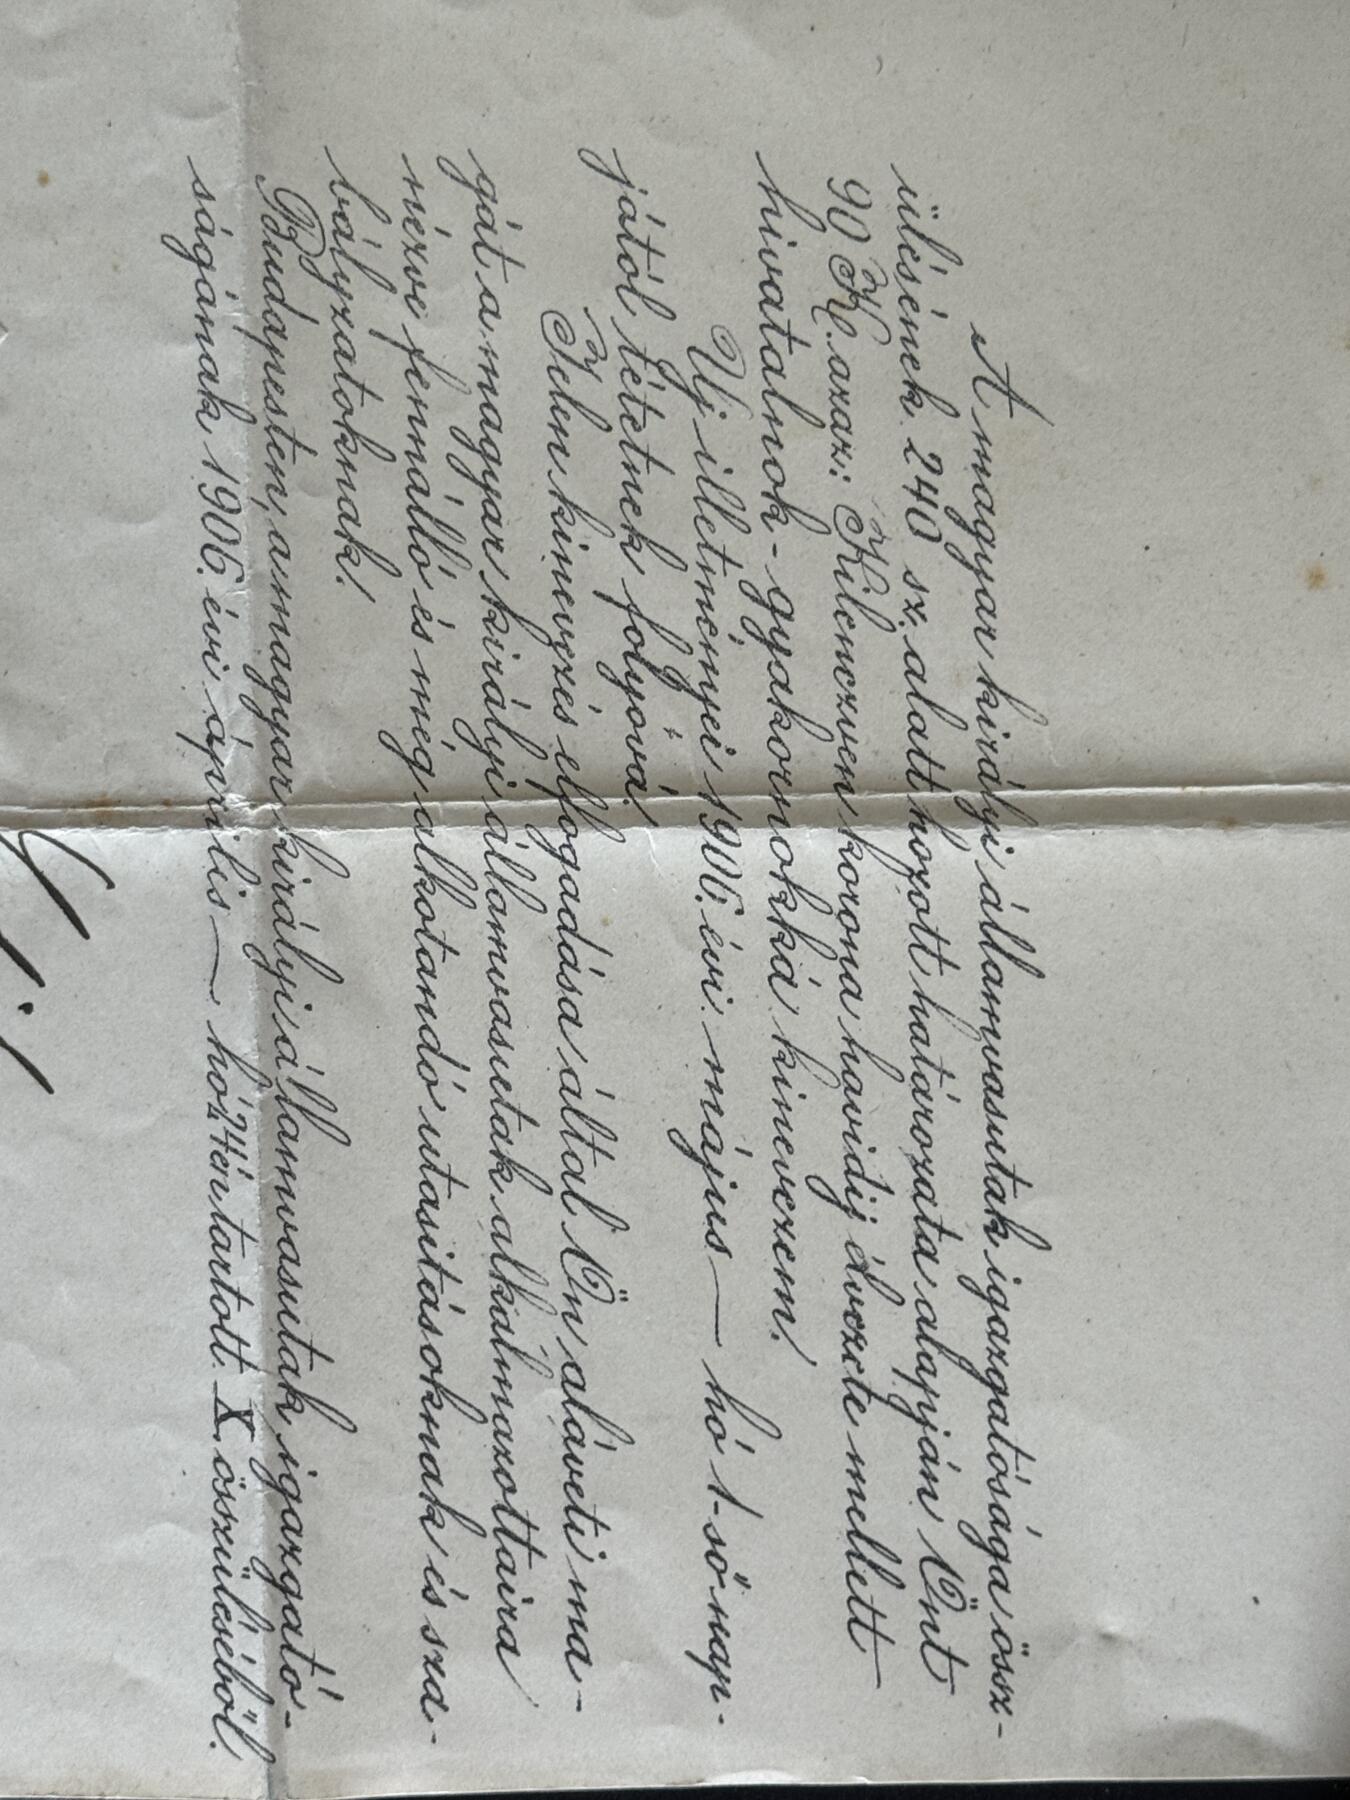 A magyar királyi államvasutak igazgatósága össz-
ülésének 240 sz. alatt hozott határozata alapján Önt
90 K. azaz: Kilenczven korona havidíj élvezete mellett
hivatalnok-gyakornokká kinevezem.
Uj illetményei 1906. évi május — hó 1-ső nap-
jától tétetnek folyóvá.
Jelen kinevezés elfogadása által Ön aláveti ma-
gát a magyar királyi államvasutak alkalmazottaira
nézve fennálló és még alkotandó utasitásoknak és sza-
bályzatoknak.
Budapesten, a magyar királyi államvasutak igazgató-
ságának 1906. évi április — hó 24én tartott X. összüléséből.